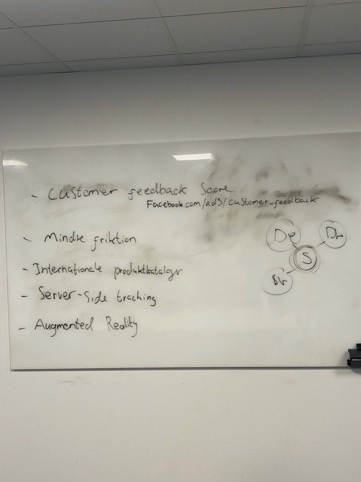 - Customer feedback Score
Facebook.com/ads/customer-feedback
- Mindre friktion
- Internationale produktkataloger
- Server-side tracking
- Augmented Reality
De
S